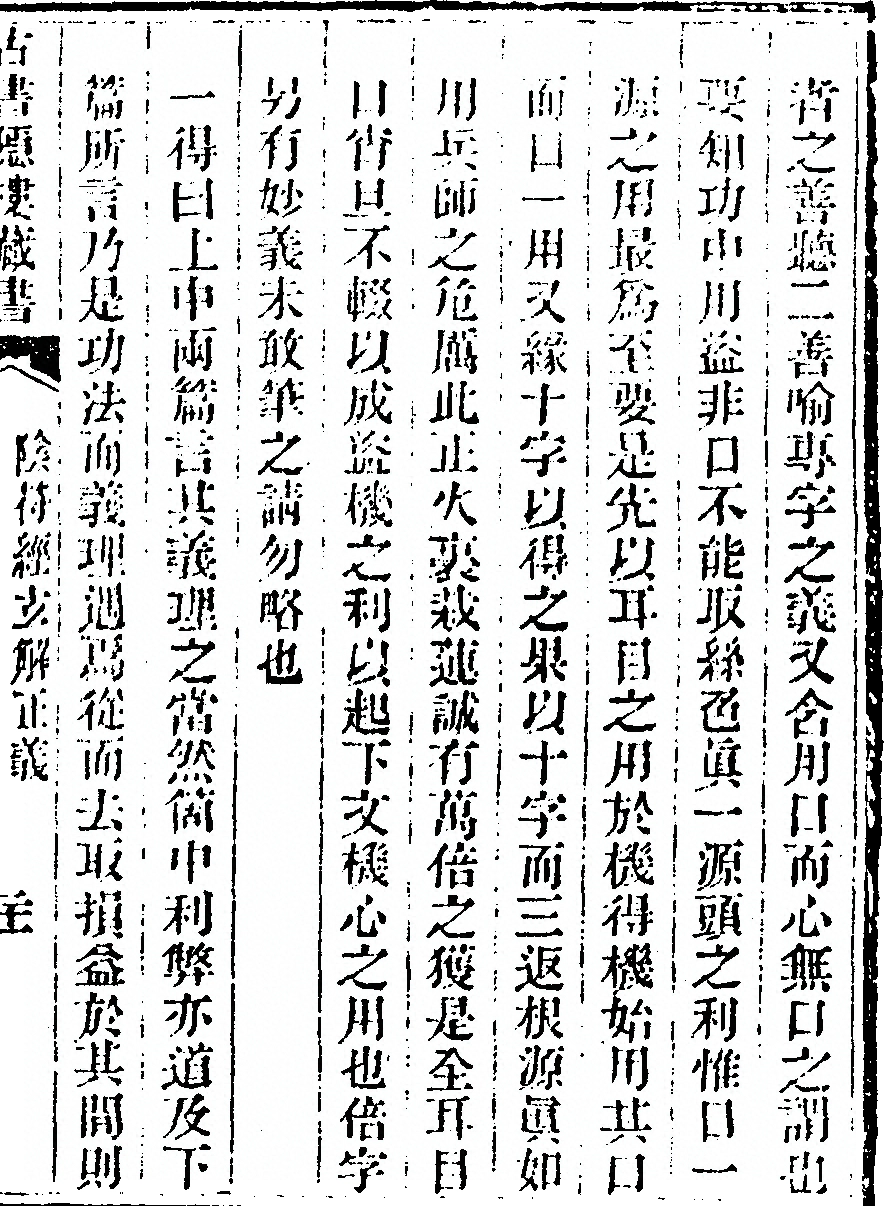 者之善聽二善喻專字之義又含用口而心無口之謂也
要知功中用益非口不能取絲毫眞一源頭之利惟口一
源之用最爲至要是先以耳目之用於機得機始用其口
而口一用又緣十字以得之果以十字而三返根源眞如
用兵師之危厲此正火裏栽蓮誠有萬倍之獲是全耳目
口宵旦不輟以成盜機之利以起下文機心之用也倍字
另有妙義未敢筆之請勿略也
一得曰上中兩篇言其義理之當然箇中利弊亦道及下
篇所言乃是功法而義理過焉從而去取損益於其間則
古書隱樓藏書
陰符經玄解正義